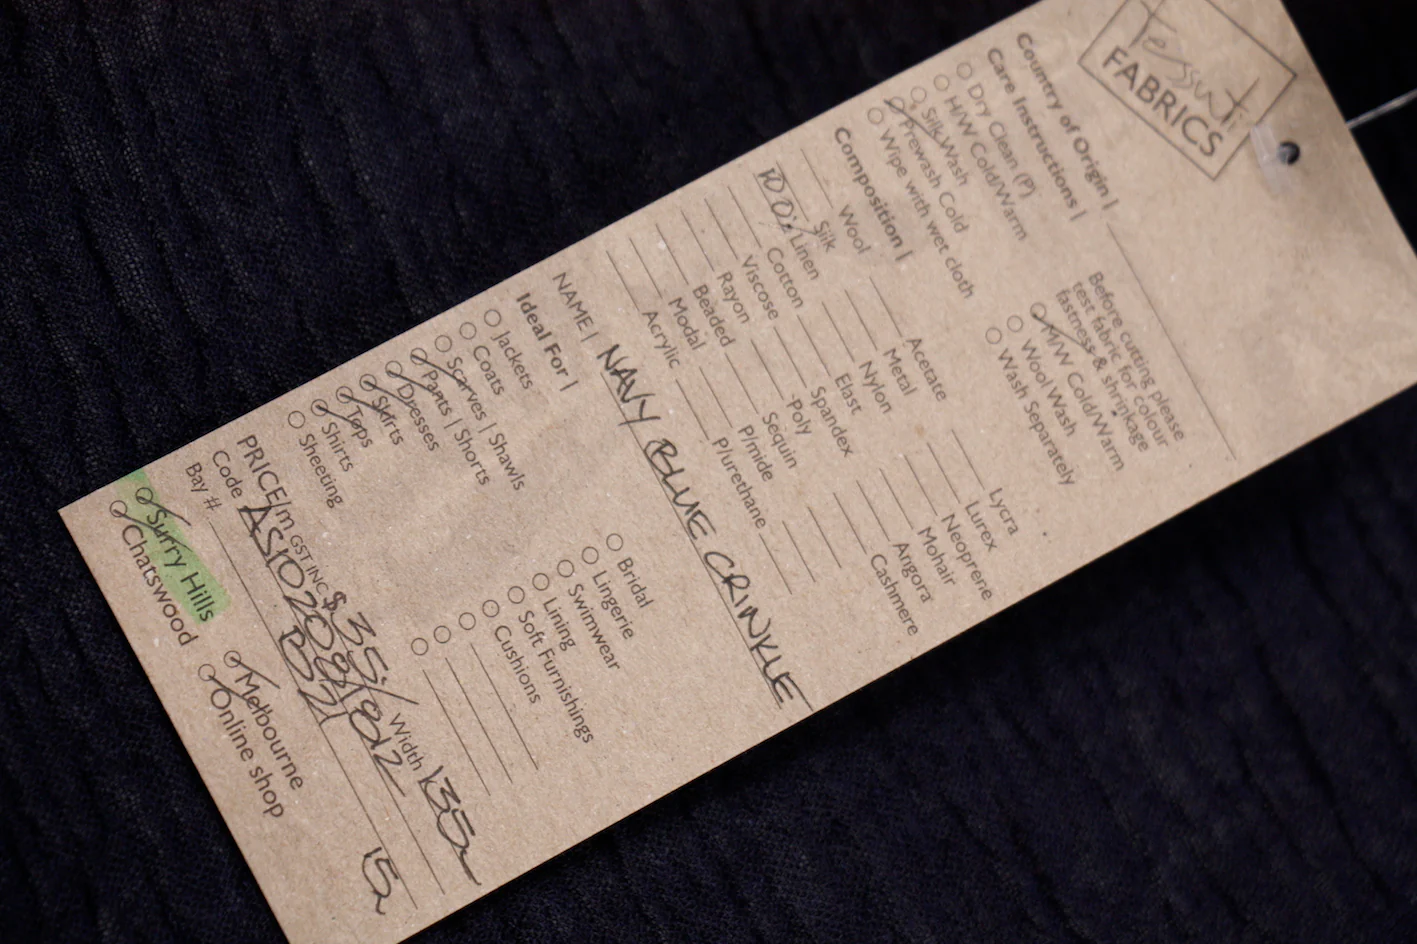 Tessuti
FABRICS
Country of Origin |
Care Instructions |
Dry Clean (P)
H/W Cold/Warm
Silk Wash
Prewash Cold
Wipe with wet cloth
Before cutting please
test fabric for colour
fastness & shrinkage
H/W Cold/Warm
Wool Wash
Wash Separately
Composition |
Wool
Silk
100% Linen
Cotton
Viscose
Rayon
Beaded
Modal
Acrylic
Acetate
Metal
Nylon
Elast
Spandex
Poly
Sequin
P/mide
P/urethane
Lycra
Lurex
Neoprene
Mohair
Angora
Cashmere
NAME | NAVY BLUE CRINKLE
Ideal For |
Jackets
Coats
Scarves | Shawls
Pants | Shorts
Dresses
Skirts
Tops
Shirts
Sheeting
Bridal
Lingerie
Swimwear
Lining
Soft Furnishings
Cushions
PRICE/m GST INC $35/ Width 135
Code
Bay #
Surry Hills
Chatswood
Melbourne
Online shop